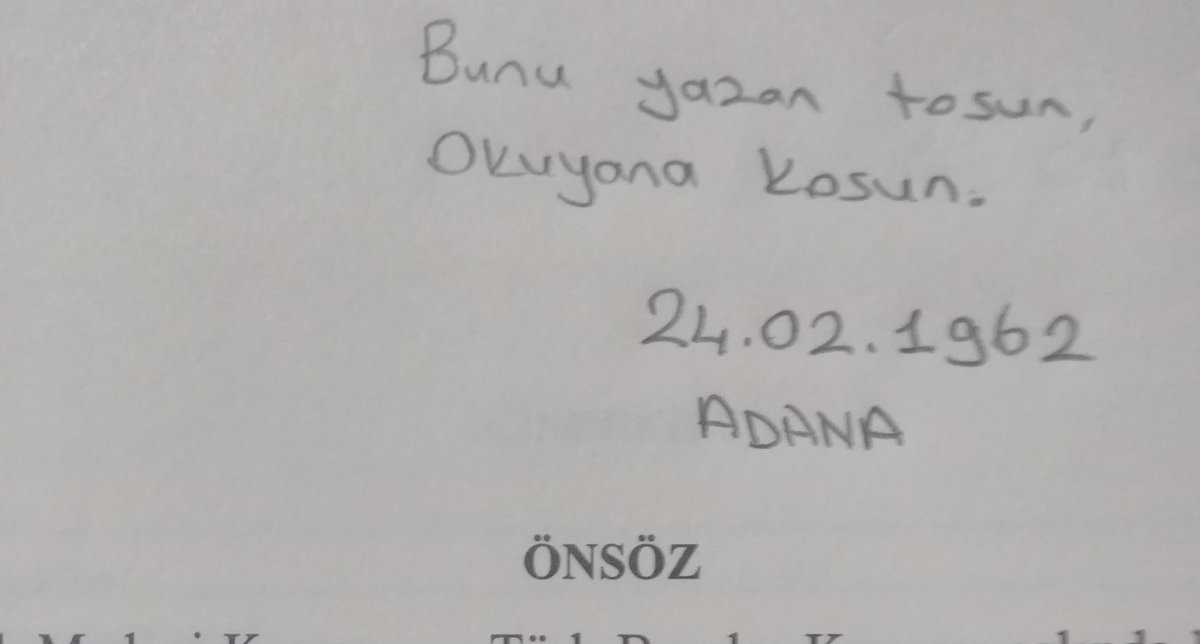 Bunu yazan tosun,
Okuyana kosun.
24.02.1962
ADANA
ÖNSÖZ